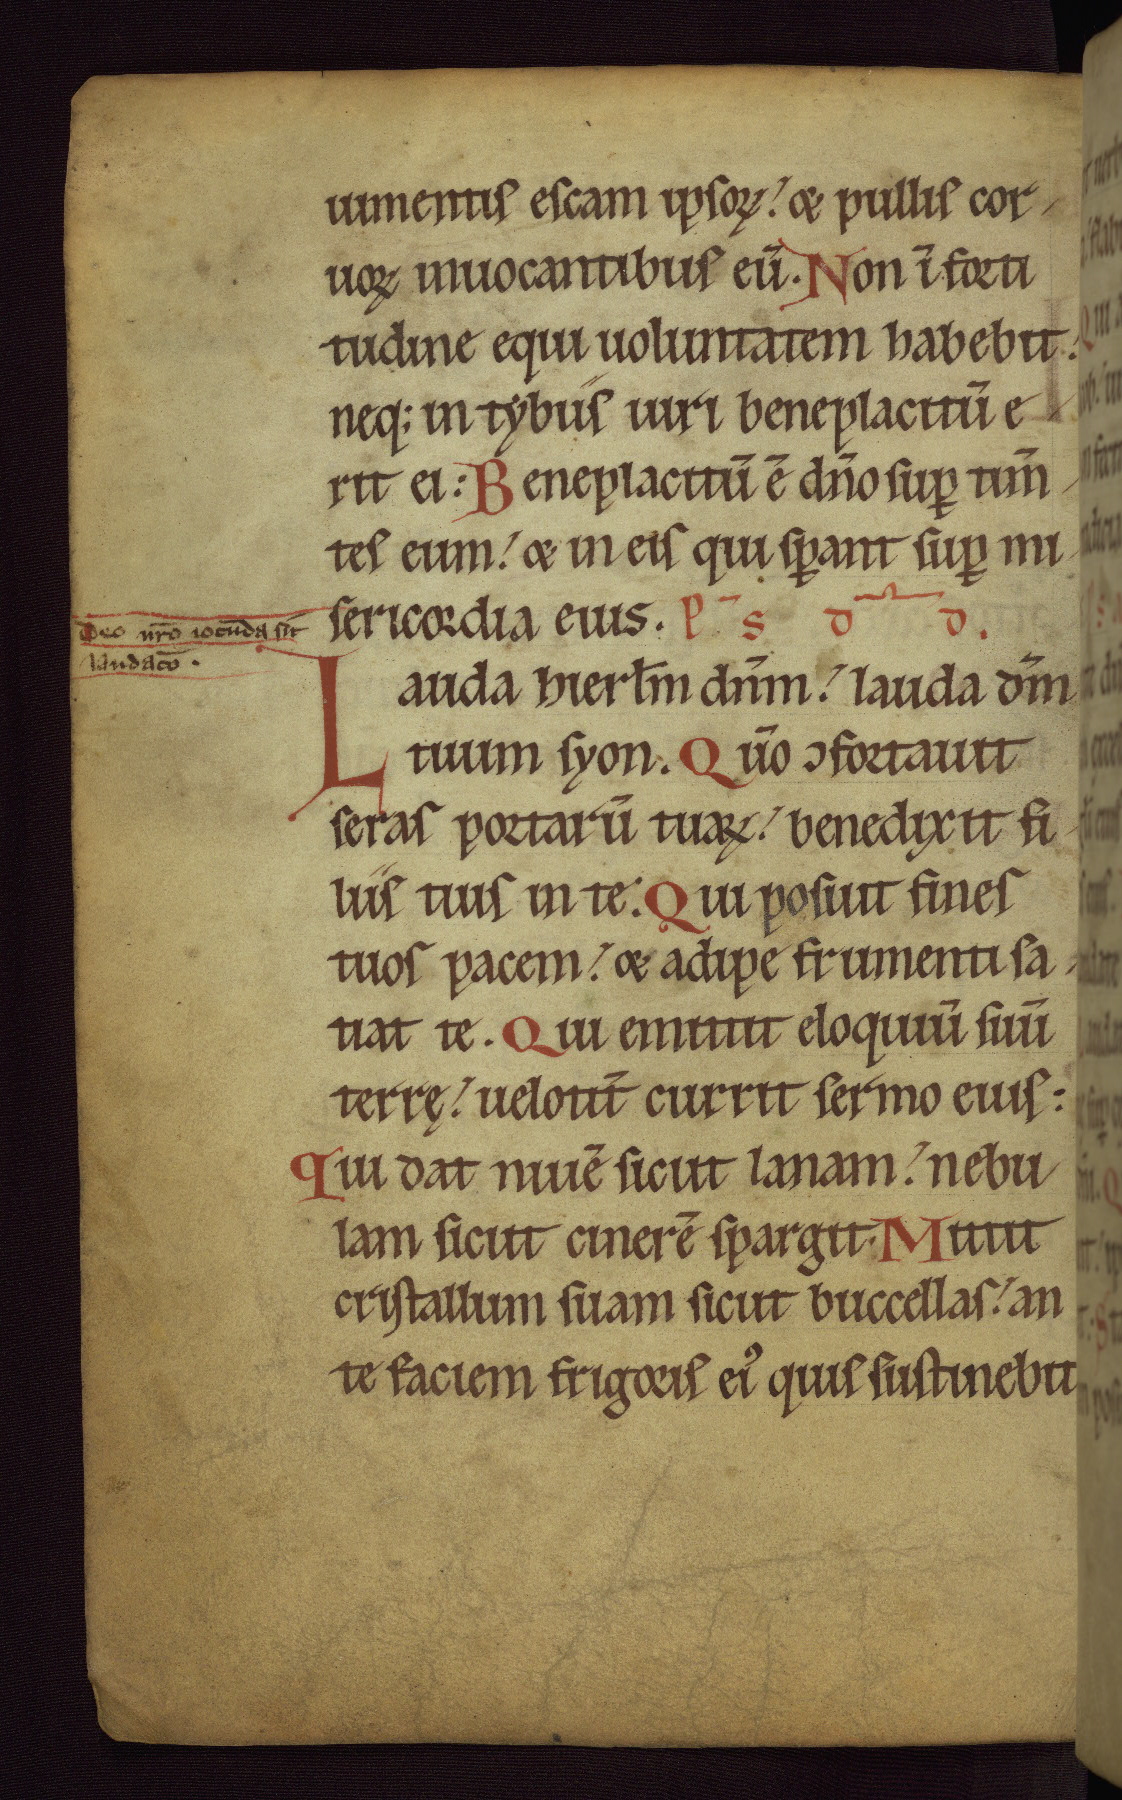 uimentis escam ipsoꝝ. & pullis cor-
uoꝝ inuocantibus eū. Non ī forti
tudine equi uoluntatem habebit:
neq; in tybiis uiri beneplacitū e
rit ei: Beneplacitū ē dn̄o suꝑ tim̄-
tes eum. & in eis qui sꝑant suꝑ mi-
sericordia eius. P s d d.
Deo nr̄o iocūda sit
laudac̄o.
Lauda hierl̄m dn̄m. lauda dm̄
tuum syon. Qūo ↄfortauit
seras portarū tuaꝝ. benedixit fi-
liis tuis in te. Qui posuit fines
tuos pacem. & adipe frumenti sa-
tiat te. Qui emittit eloquiū suū
terrę. uelocit̄ currit sermo eius:
Qui dat niuē sicut lanam. nebu
lam sicut cinerē spargit. Mittit
cristallum suam sicut buccellas. an
te faciem frigoris eiꝰ quis sustinebit